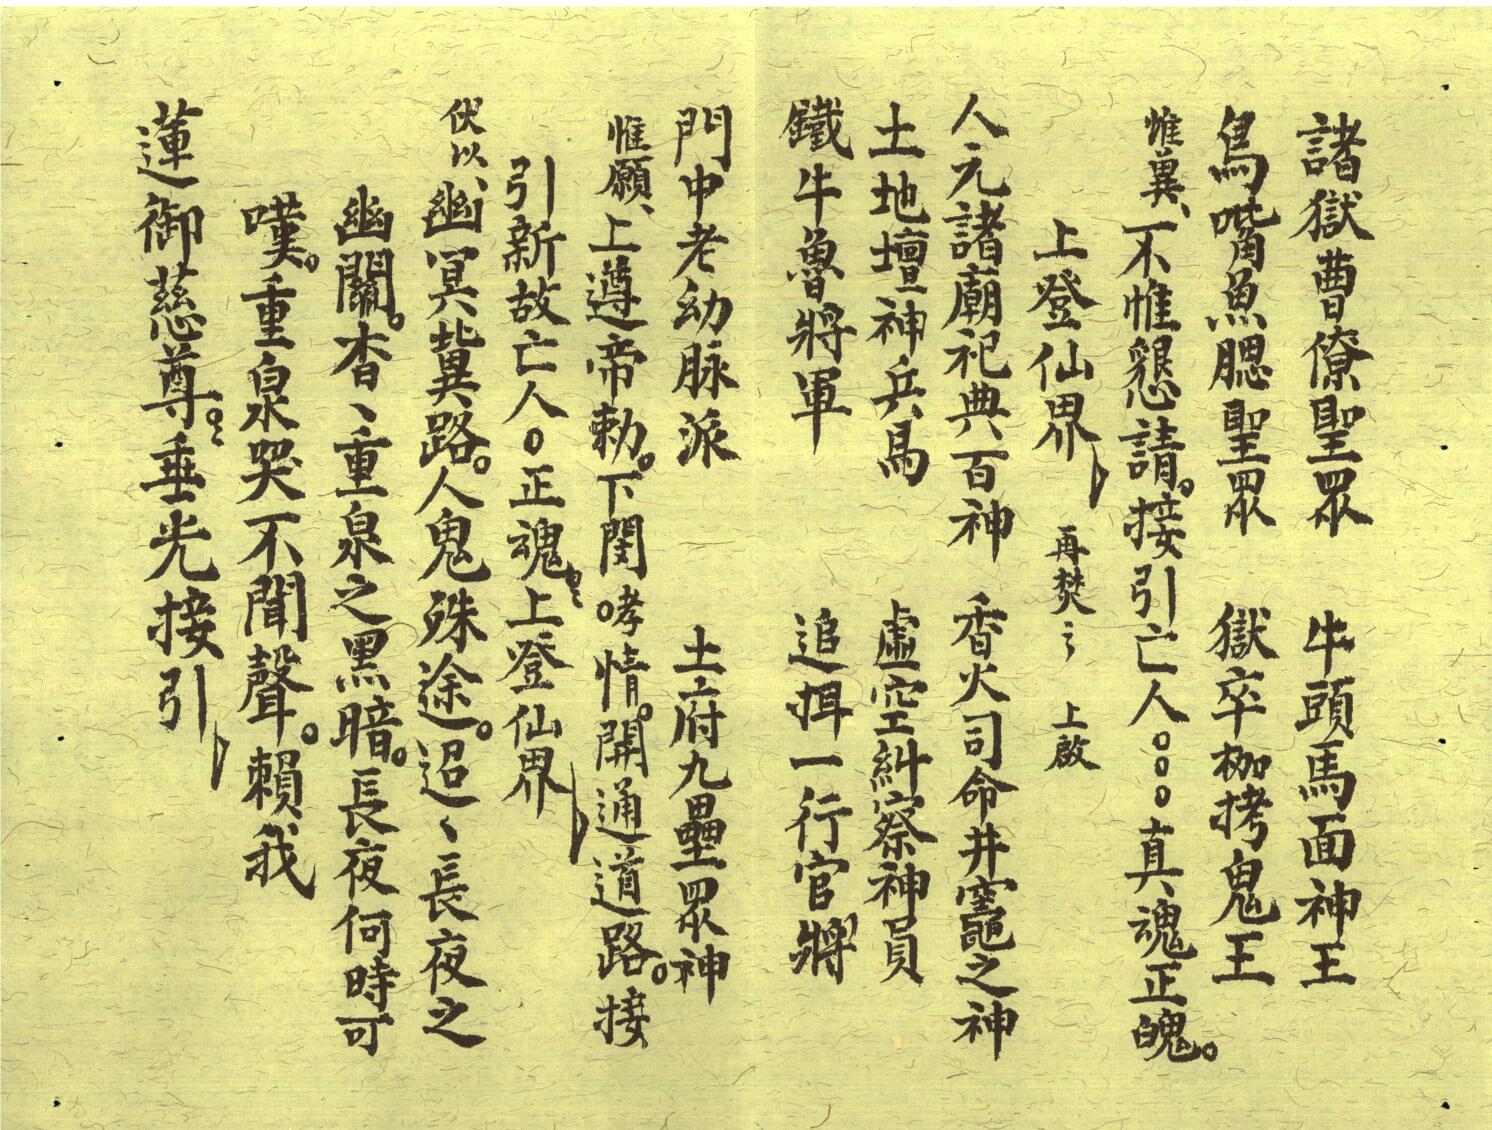 諸獄曹僚聖眾　牛頭馬面神王
鳥嘴魚腮聖眾　獄卒枷拷鬼王
惟冀、不惟懇請。接引亡人。。。真魂正魄。
上登仙界　再焚〻　上啟
人元諸廟祀典百神　香火司命井竈之神
土地壇神兵馬　虛空糾察神員
鐵牛魯將軍　追捐一行官將
門中老幼脉派　土府九壘眾神
惟願、上遵帝勅。下閔。孝情。開通道路。接
引新故亡人。正魂〻上登仙界
伏以、幽冥冀路。人鬼殊途。迢〻長夜之
幽關。杳〻重泉之黑暗。長夜何時可
嘆。重泉哭不聞聲。賴我
蓮御慈尊。〻垂光接引